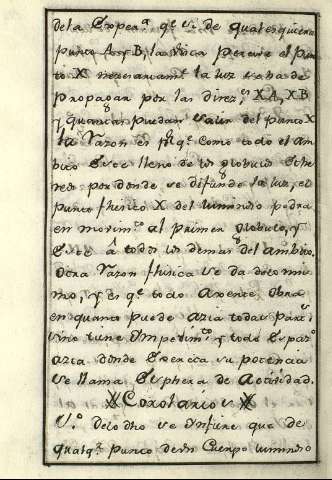 de la Expea.ª q.e si de qualesquiera
punto A y B, la vista percive el pun
to X necesariam.te la luz se ha de
propagar por las direz.es XA, XB
y quantas puedan salir del punto X
la razon es p.r q.e como todo el am
bito este lleno de los globulos Ethe
reos por donde se difunde la luz, el
punto fhisico X del luminoso podra
en movim.to al primer globulo, y
este â todos los demas del ambito.
Otra razon fhisica se da de lo mis
mo, y es q.e todo Agente obra
en quanto puede azia todas part.s
sino tiene Impedim.to y todo Espaz.o
azia donde Exercita su potencia
se llama Esphera de Actividad.
Corolarios
1.º de lo dho se Infiere que de
qualq.r punto de un Cuerpo luminoso